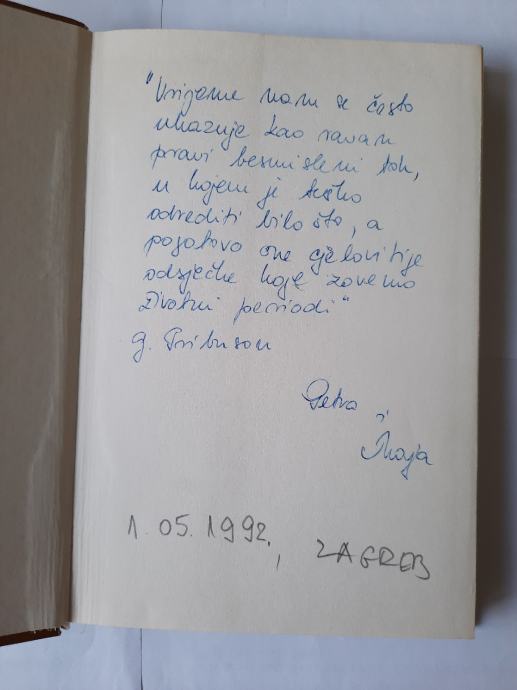 "Vrijeme nam se često
ukazuje kao ravan
pravi besmisleni tok,
u kojem je teško
odrediti bilo što, a
pogotovo one cjelovitije
odsječke koje zovemo
životni periodi"
G. Tribuson
Petra i
Maja
1.05.1992., ZAGREB